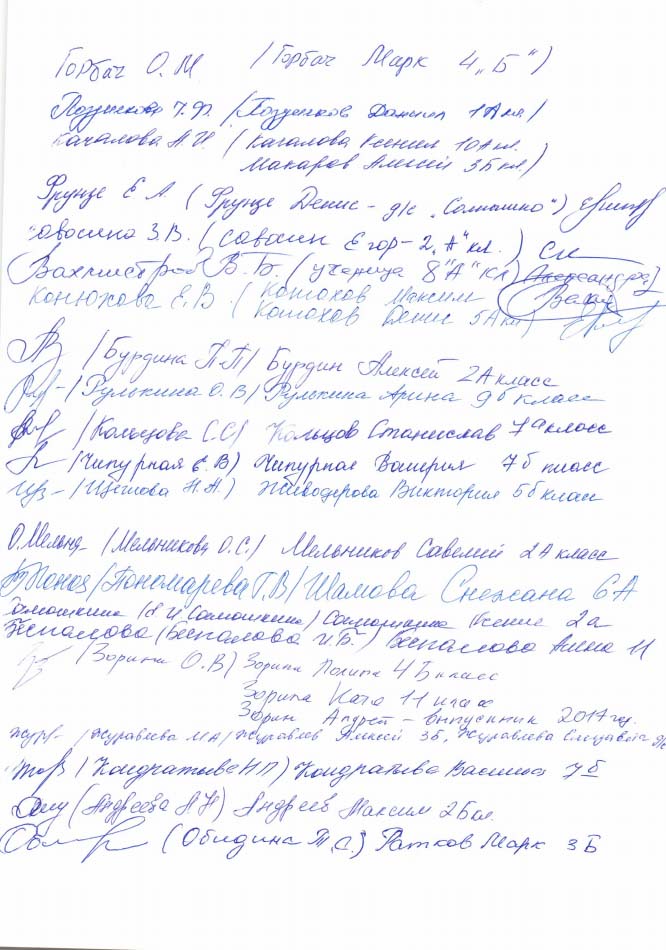 Горбач О.М. (Горбач Марк 4 „Б“)
(Поздняков Даниил 1А кл)
Качалова А.И. (Качалова Ксения 10А кл.
Макаров Алексей 3Б кл.)
Фрунзе Е.А. (Фрунзе Денис - д/с „Солнышко“)
Савосина З.В. (Савосин Егор - 2 „А“ кл.)
В.Б. (ученица 8 "А" кл)
Конюхова Е.В. (Конюхов Максим
Конюхов Денис 5А кл)
(Бурдина П.П) Бурдин Алексей 2А класс
(Рулькина О.В) Рулькина Арина 9б класс
(Кольцова С.С) Кольцов Станислав 7а класс
(Чипурная Е.В) Чипурная Валерия 7б класс
(Щеглова Н.А.) Живодерова Виктория 5б класс
(Мельникова О.С.) Мельников Савелий 2А класс
(Пономарева Т.В) Шамова Снежана 6А
Ксения 2а
Беспалова (Беспалова И.Б.) Беспалова Алина 11
(Зорина О.В) Зорина Полина 4Б класс
Зорина Катя 11 класс
Зорин Андрей - выпускник 2017 г.
(Журавлева М.А) Журавлев Алексей 3б, Журавлева Елизавета
(Кондратьева Н.П) Кондратьева Василиса 7б
(Андреева А.Н) Андреев Максим 2Б кл.
(Обидина Т.С.) Ратков Марк 3Б